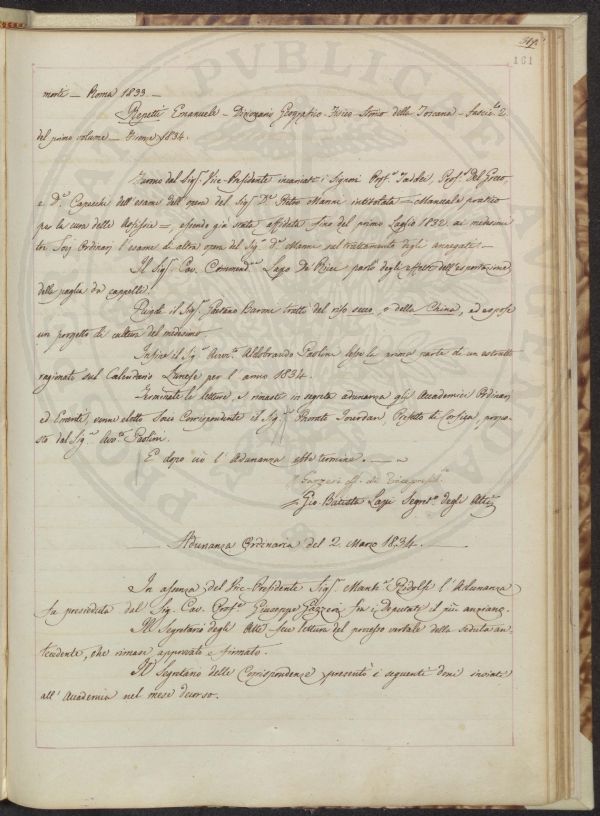 161
morti — Roma 1833 —
Repetti Emanuele — Dizionario Geografico Fisico Storico della Toscana — Fascic.lo 2.
del primo volume — Firenze 1834.
Furono dal Sig.r Vice-Presidente incaricati i Signori Prof.r Taddei, Prof.r Del Greco
e D.r Capecchi dell'esame dell'opera del Sig.r D.r Pietro Manni intitolata — Manuale pratico
per la cura delle Asfissie —, essendo già stato affidato fino del primo Luglio 1832 ai medesimi
tre Socj Ordinarj l'esame di altra opera del Sig.r D.r Manni sul trattamento degli annegati. —
Il Sig.r Cav. Commend.re Lapo De' Ricci parlò degli effetti dell'esportazione
della paglia da cappelli.
Quindi il Sig.r Gaetano Baroni trattò del riso secco, o della China, ed espose
un progetto di cultura del medesimo.
Infine il Sig.r Avv.o Aldobrando Paolini lesse la prima parte di un estratto
ragionato sul Calendario Lunese per l'anno 1834.
Terminate le letture, e rimasti in segreta adunanza gli Accademici Ordinarj
ed Emeriti, venne eletto Socio Corrispondente il Sig.r Jourdan, Prefetto di Corsica, propo-
sto dal Sig.r Avv.o Paolini.
E dopo ciò l'Adunanza ebbe termine. —
Gazzeri ff. di Vicepresid.
Gio. Batista Lapi Segret.o degli Atti
Adunanza Ordinaria del 2. Marzo 1834. —
In assenza del Vice-Presidente Sig.r March.e Ridolfi l'Adunanza
fu presieduta dal Sig. Cav. Prof.e Giuseppe Gazzeri fra i Deputati il più anziano.
Il Segretario degli Atti fece lettura del processo verbale della seduta an-
tecedente, che rimase approvato e firmato.
Il Segretario delle Corrispondenze presentò i seguenti doni inviati
all'Accademia nel mese decorso.